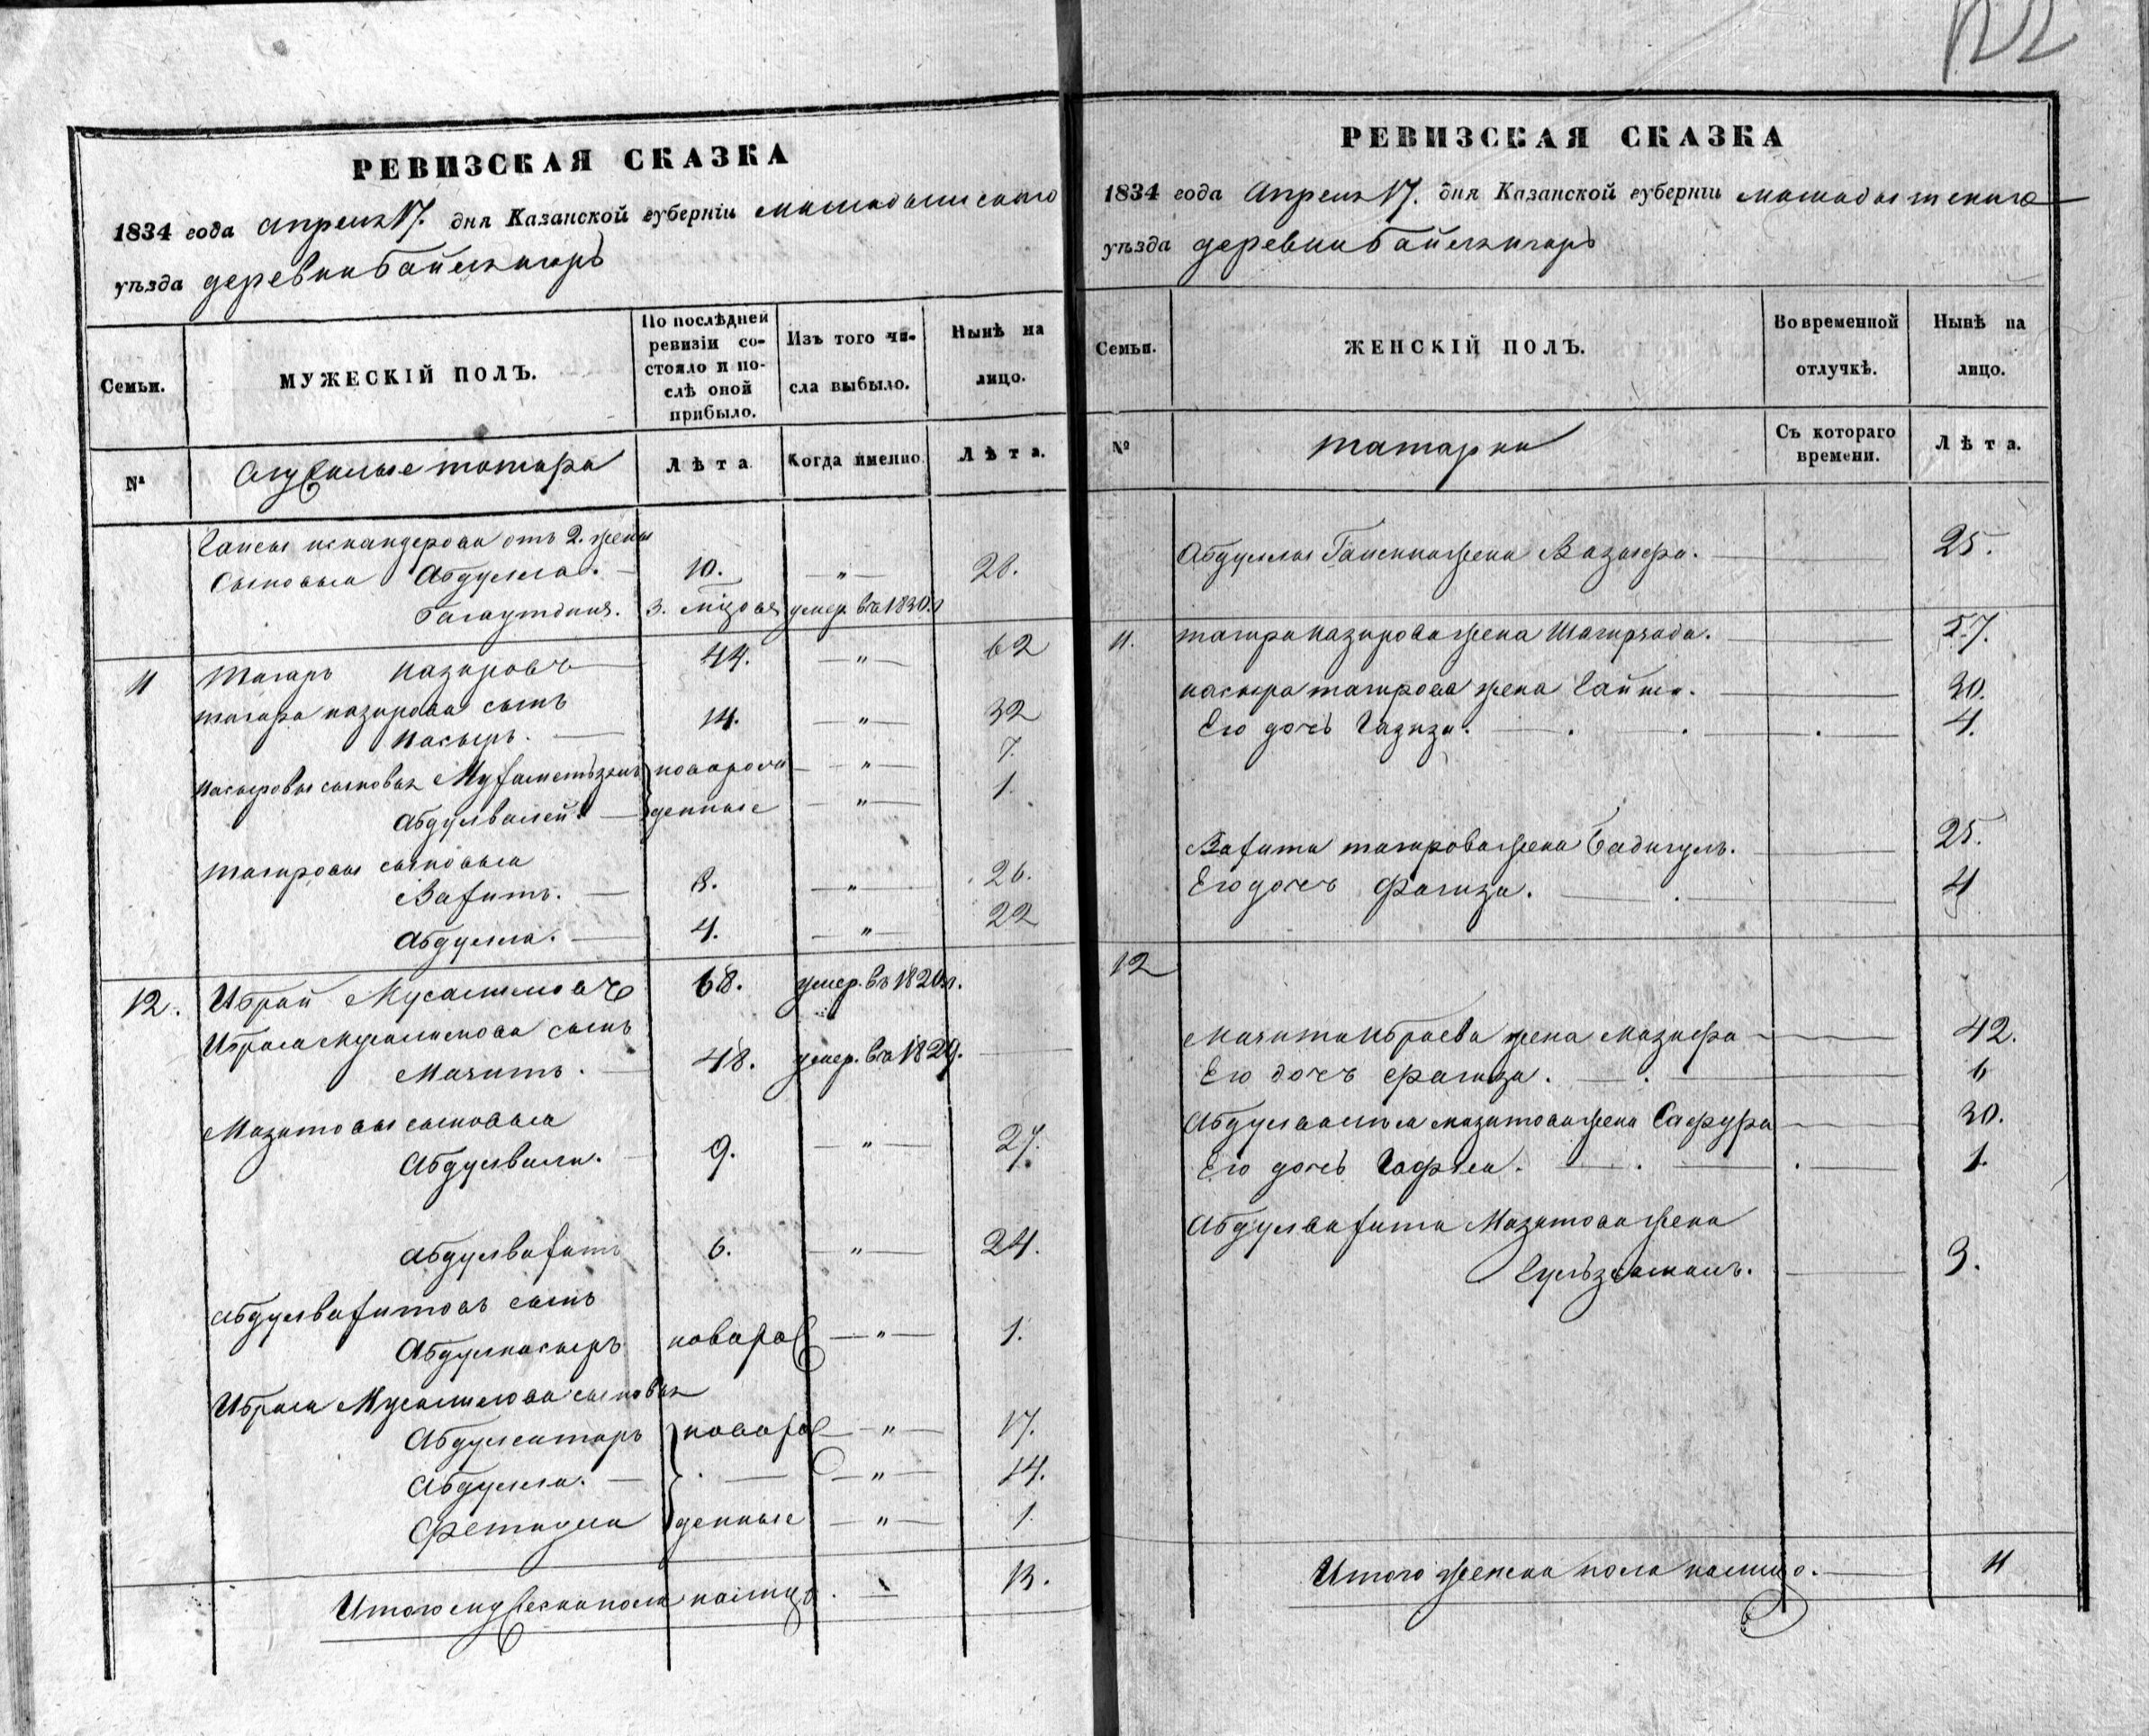 122
РЕВИЗСКАЯ СКАЗКА
1834 года Апреля 17. дня Казанской губерніи мамадышскаго
уѣзда деревни Байлянгаръ
Семьи.
МУЖЕСКІЙ ПОЛЪ.
По послѣдней ревизіи состояло и послѣ оной прибыло.
Изъ того числа выбыло.
Нынѣ на лицо.
№
служилые татара
Лѣта
Когда именно
Лѣта.
Гайсы искандерова отъ 2. жены
Сыновья Абдулла. — 10. — „ — 28.
Багаутдинъ. 3. мѣсяц умер. въ 1830.г
11 Тагиръ Назировъ — 44. — „ — 62
тагира назирова сынъ
Насыръ. — 14. — „ — 32
насыровы сыновья Мухаметзянъ новорож — „ — 7.
Абдулвалей. — денные — „ — 1.
тагировы сыновья
Вахитъ. — 8. — „ — 26.
Абдулла. — 4. — „ — 22
12. Ибрай Мусалимовъ 68. умер. въ 1820.г.
Ибрая мусалимова сынъ
Мазитъ. — 48. умер. въ 1829. —
Мазитовы сыновья
Абдулвали. — 9. — „ — 27.
Абдулвахитъ 6. — „ — 24.
Абдулвахитовъ сынъ
Абдулнасыръ новорож — „ — 1.
Ибрая Мусалимова сыновья
Абдулсатаръ новорож — „ — 17.
Абдулла. — . — — „ — 14.
Фетхулла денные — „ — 1.
Итого мужеска пола налицо. — 13.
РЕВИЗСКАЯ СКАЗКА
1834 года Апреля 17. дня Казанской губерніи мамадышскаго
уѣзда деревни Байлянгаръ
Семьи.
ЖЕНСКІЙ ПОЛЪ.
Во временной отлучкѣ.
Нынѣ на лицо.
№
татарки
Съ котораго времени.
Лѣта.
Абдуллы Гайсина жена Вазифа. — 25.
11. тагира назирова жена Шагирзада. — 57.
насыра тагирова жена Гайша. — 30.
Его дочь Газиза. — . — . — . — 4.
Вахита тагирова жена Бадигулъ. — 25.
Его дочь Фагиза. — . — 4
12
Мазита Ибраева жена Мазифа — 42.
Его дочь Фагиза. — . — 6
Абдулвалия мазитова жена Сафура — 30.
Его дочь Гафия. — . — . — 1.
Абдулвахита Мазитова жена
Гульзямалъ. — 3.
Итого женска пола налицо. — 11